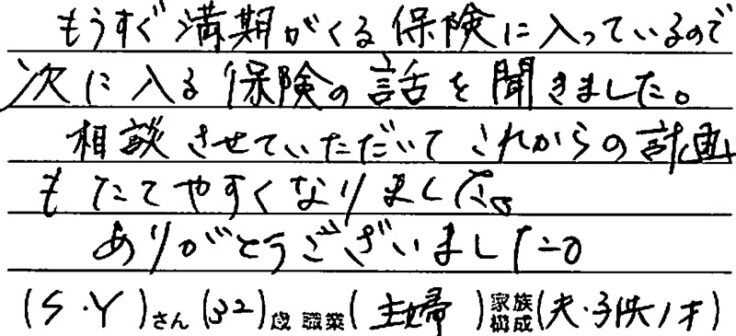 もうすぐ満期がくる保険に入っているので
次に入る保険の話を聞きました。
相談させていただいてこれからの計画
もたてやすくなりました。
ありがとうございました。
(S.Y)さん(32)歳 職業(主婦)家族構成(夫・子供1才)